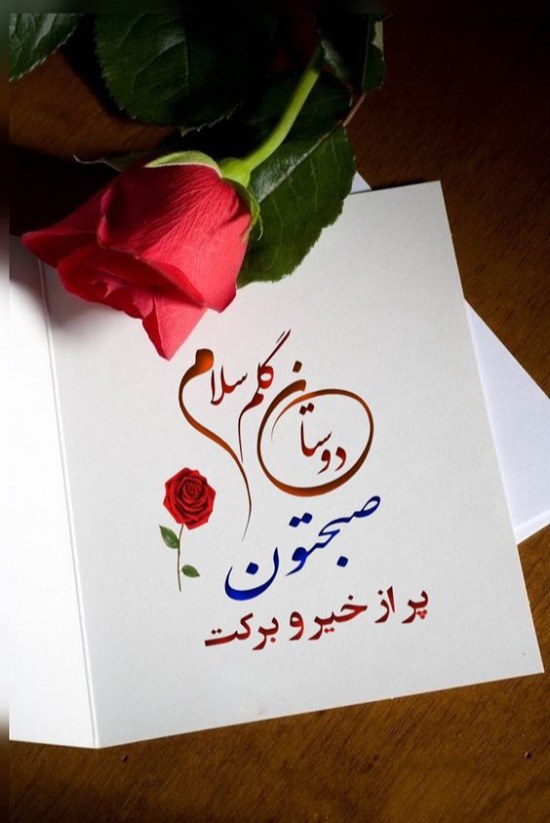 دوستان گلم سلام
صبحتون
پر از خیر و برکت